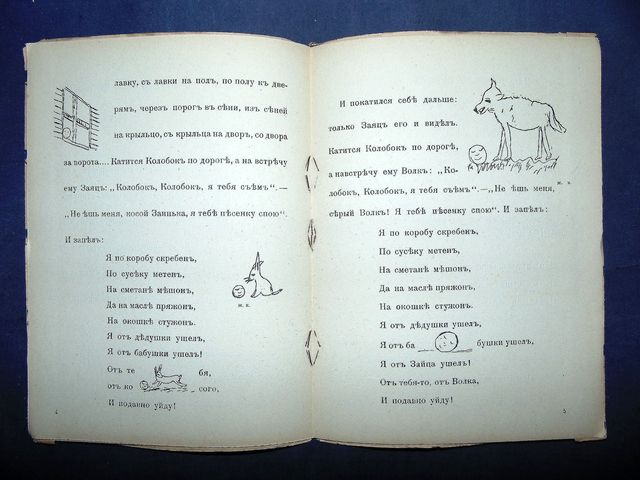 лавку, съ лавки на полъ, по полу къ две-
рямъ, черезъ порогъ въ сѣни, изъ сѣней
на крыльцо, съ крыльца на дворъ, со двора
за ворота.... Катится Колобокъ по дорогѣ, а на встрѣчу
ему Заяцъ: „Колобокъ, Колобокъ, я тебя съѣмъ“.—
„Не ѣшь меня, косой Заинька, я тебѣ пѣсенку спою“.
И запѣлъ:
Я по коробу скребенъ,
По сусѣку метенъ,
На сметанѣ мѣшонъ,
Да на маслѣ пряжонъ,
На окошкѣ стужонъ.
Я отъ дѣдушки ушелъ,
Я отъ бабушки ушелъ!
Отъ те бя,
отъ ко сого,
И подавно уйду!
4
И покатился себѣ дальше:
только Заяцъ его и видѣлъ.
Катится Колобокъ по дорогѣ,
а навстрѣчу ему Волкъ: „Ко-
лобокъ, Колобокъ, я тебя съѣмъ“.—„Не ѣшь меня,
сѣрый Волкъ! Я тебѣ пѣсенку спою“. И запѣлъ:
Я по коробу скребенъ,
По сусѣку метенъ,
На сметанѣ мѣшонъ,
Да на маслѣ пряжонъ,
На окошкѣ стужонъ.
Я отъ дѣдушки ушелъ,
Я отъ ба бушки ушелъ,
Я отъ Зайца ушелъ!
Отъ тебя-то, отъ Волка,
И подавно уйду!
5